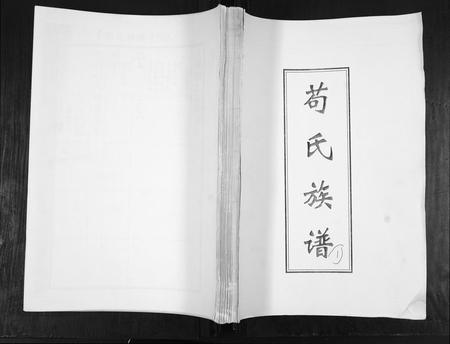 苟氏族谱
1